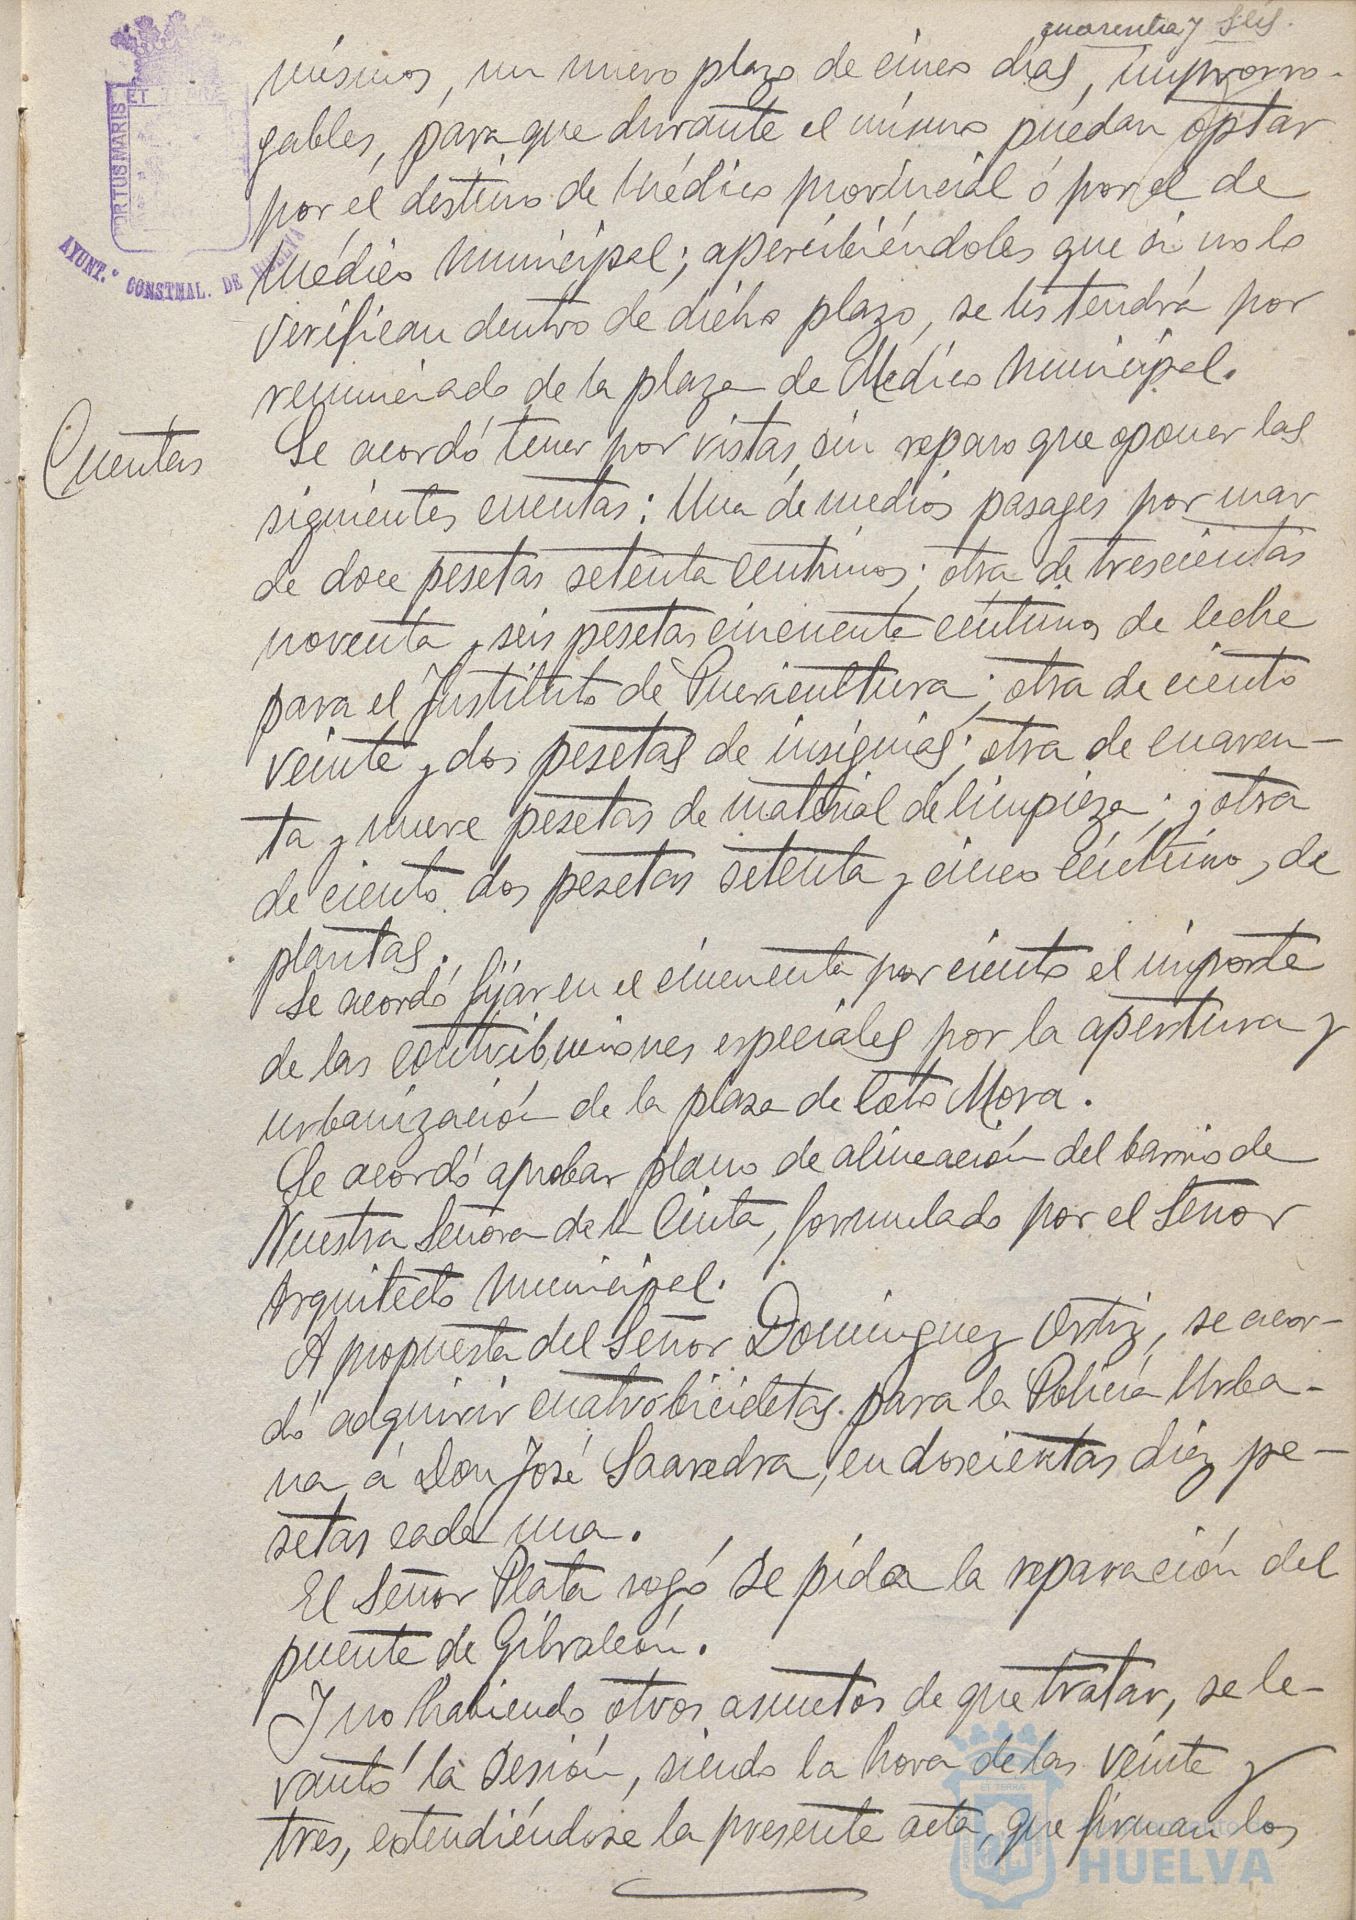 cuarenta y seis.
mismos, un nuevo plazo de cinco días, improrro-
gables, para que durante el mismo puédan optar
por el destino de Médico provincial ó por el de
Médico Municipal; apercibiéndoles que si no lo
verifican dentro de dicho plazo, se les tendrá por
renunciado de la plaza de Médico Municipal.
Cuentas
Se acordó tener por vistas, sin reparo que oponer las
siguientes cuentas: Una de medios pasages por mar
de doce pesetas setenta céntimos; otra de trescientas
noventa y seis pesetas cincuenta céntimos de leche
para el Instituto de Puericultura; otra de ciento
veinte y dos pesetas de insignias; otra de cuaren-
ta y nueve pesetas de material de limpieza; y otra
de ciento dos pesetas setenta y cinco céntimos, de
plantas.
Se acordó fijar en el cincuenta por ciento el importe
de las contribuciones especiales por la apertura y
urbanización de la plaza de Coto Mora.
Se acordó aprobar plano de alineación del barrio de
Nuestra Señora de la Cinta, formulado por el Señor
Arquitecto Municipal.
A propuesta del Señor Dominguez Ortiz, se acor-
dó adquirir cuatro bicicletas para la Policía Urba-
na, á Don José Saavedra, en doscientas diez pe-
setas cada una.
El Señor Plata rogó se pida la reparación del
puente de Gibraleón.
Y no habiendo otros asuntos de que tratar, se le-
vantó la sesión, siendo la hora de las veinte y
tres, extendiéndose la presente acta, que firman los
PORTUS MARIS
ET TERRÆ
AYUNT.º CONSTNAL. DE HUELVA
ET TERRA
HUELVA